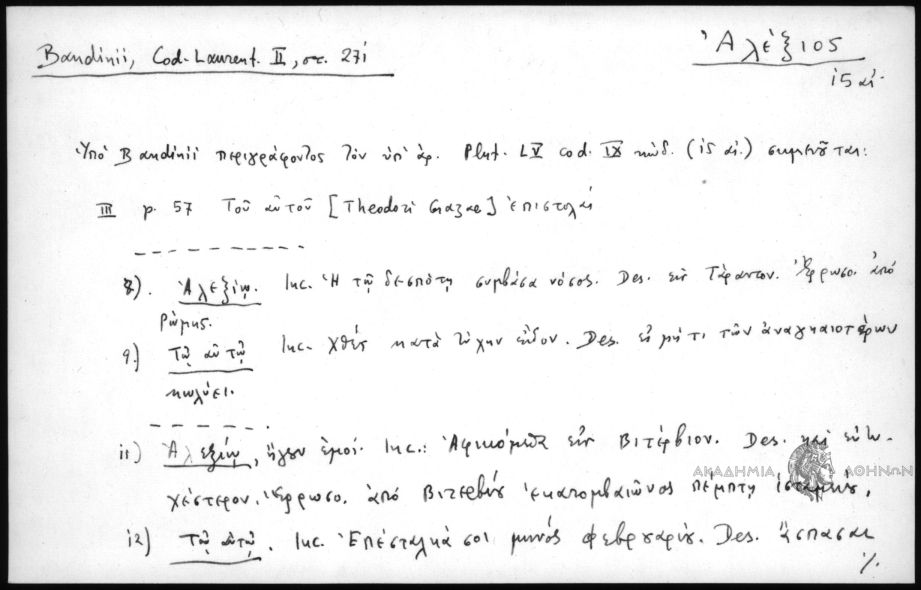 Bandinii, Cod. Laurent. II, σε. 271
Ἀλέξιος
15 αἰ.
Ὑπὸ Bandinii περιγράφοντος τὸν ὑπ' ἀρ. Plut. LV cod. IX κώδ. (15 αἰ.) σημειοῦται:
III p. 57 Τοῦ αὐτοῦ [Theodori Gazae] ἐπιστολαί
8). Ἀλεξίῳ. Inc. Ἡ τῷ δεσπότῃ συμβάσα νόσος. Des. εἰς Τάραντον. Ἔρρωσο. ἀπό
Ρώμης.
9.) Τῷ αὐτῷ Inc. Χθὲς κατὰ τύχην εἶδον. Des. εἰ μή τι τῶν ἀναγκαιοτέρων
κωλύει.
11) Ἀλεξίῳ, ἤγουν ἐμοί. Inc.: Ἀφικόμεθα εἰς Βιτέρβιον. Des. καὶ εὐτυ-
χέστερον. Ἔρρωσο. ἀπό Βιτερβίου ἑκατομβαιῶνος πέμπτῃ ἱσταμένου.
ΑΚΑΔΗΜΙΑ ΑΘΗΝΩΝ
12) Τῷ αὐτῷ. Inc. Ἐπέσταλκά σοι μηνός Φεβρουαρίου. Des. ἄσπασαι
%.